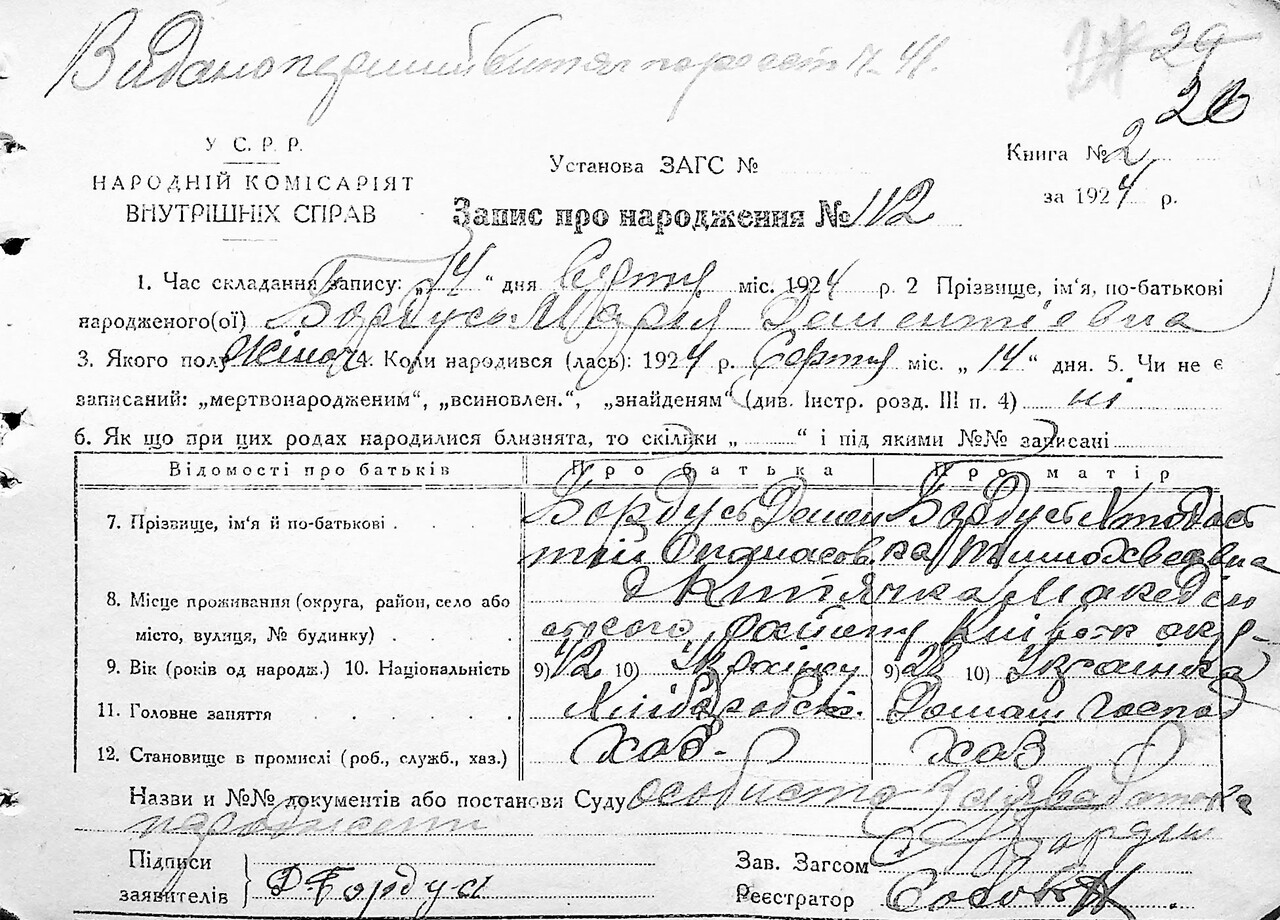 Видано перший витяг
29
26
У С. Р. Р.
НАРОДНІЙ КОМІСАРІЯТ
ВНУТРІШНІХ СПРАВ
Установа ЗАГС №
Книга № 2
за 1924 р.
Запис про народження № 112
1. Час складання запису: „14“ дня Серпня міс. 1924 р. 2 Прізвище, ім'я, по-батькові
народженого(ої) Бордусь Марія Дементіевна
3. Якого полу жіноч 4. Коли народився (лась): 1924 р. Серпня міс. „14“ дня. 5. Чи не є
записаний: „мертвонародженим“, „всиновлен.“, „знайденям“ (див. Інстр. розд. III п. 4) ні
6. Як що при цих родах народилися близнята, то скільки „ “ і під якими №№ записані
Відомості про батьків Про батька Про матір
7. Прізвище, ім'я й по-батькові . Бордусь Демен Бордусь
тій Тимохвеевна
8. Місце проживання (округа, район, село або
місто, вулиця, № будинку) . . району Київськ окр.
9. Вік (років од народж.) 10. Національність 9) 10) 9) 28 10) Українка
11. Головне заняття . . . . . Хліборобств. Домаш господ
12. Становище в промислі (роб., служб., хаз.) хаз. хаз
Назви и №№ документів або постанови Суду особиста заява батька
Підписи
заявителів
Д Бордусь
Зав. Загсом
Реєстратор